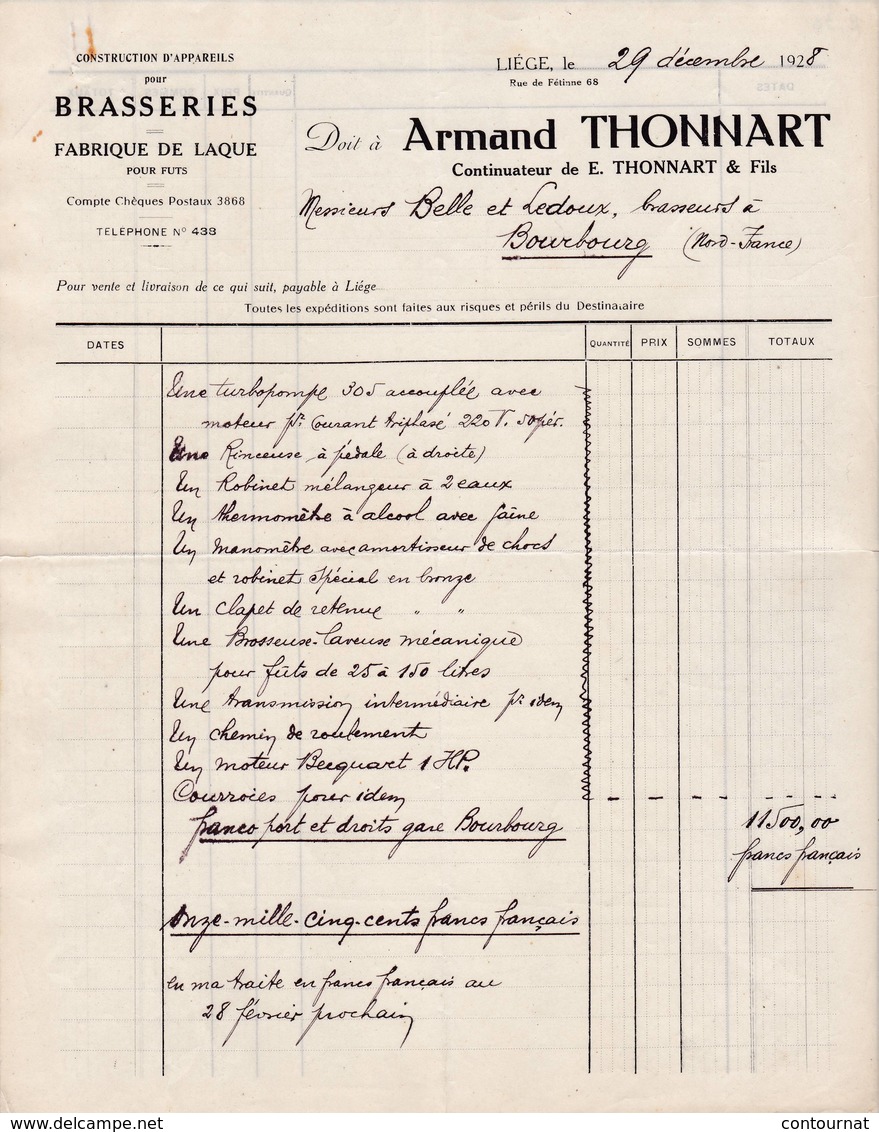 CONSTRUCTION D'APPAREILS
pour
BRASSERIES
FABRIQUE DE LAQUE
POUR FUTS
Compte Chèques Postaux 3868
TELEPHONE N° 433
LIÉGE, le 29 décembre 1928
Rue de Fétinne 68
Doit à Armand THONNART
Continuateur de E. THONNART & Fils
Messieurs Belle et Ledoux, brasseurs à
Bourbourg (Nord-France)
Pour vente et livraison de ce qui suit, payable à Liége
Toutes les expéditions sont faites aux risques et périls du Destinataire
DATES QUANTITÉ PRIX SOMMES TOTAUX
Une turbopompe 305 accouplée avec
moteur pr. Courant triphasé 220 V. 50 pér.
Une Rinceuse à pédale (à droite)
Un Robinet mélangeur à 2 eaux
Un thermomètre à alcool avec gaîne
Un manomètre avec amortisseur de chocs
et robinet spécial en bronze
Un clapet de retenue " "
Une Brosseuse-laveuse mécanique
pour fûts de 25 à 150 litres
Une transmission intermédiaire pr. idem
Un chemin de roulement
Un moteur Becquart 1 HP.
Courroies pour idem
franco port et droits gare Bourbourg
11500,00
francs français
Onze-mille-cinq-cents francs français
en ma traite en francs français au
28 février prochain
delcampe.net
contournat